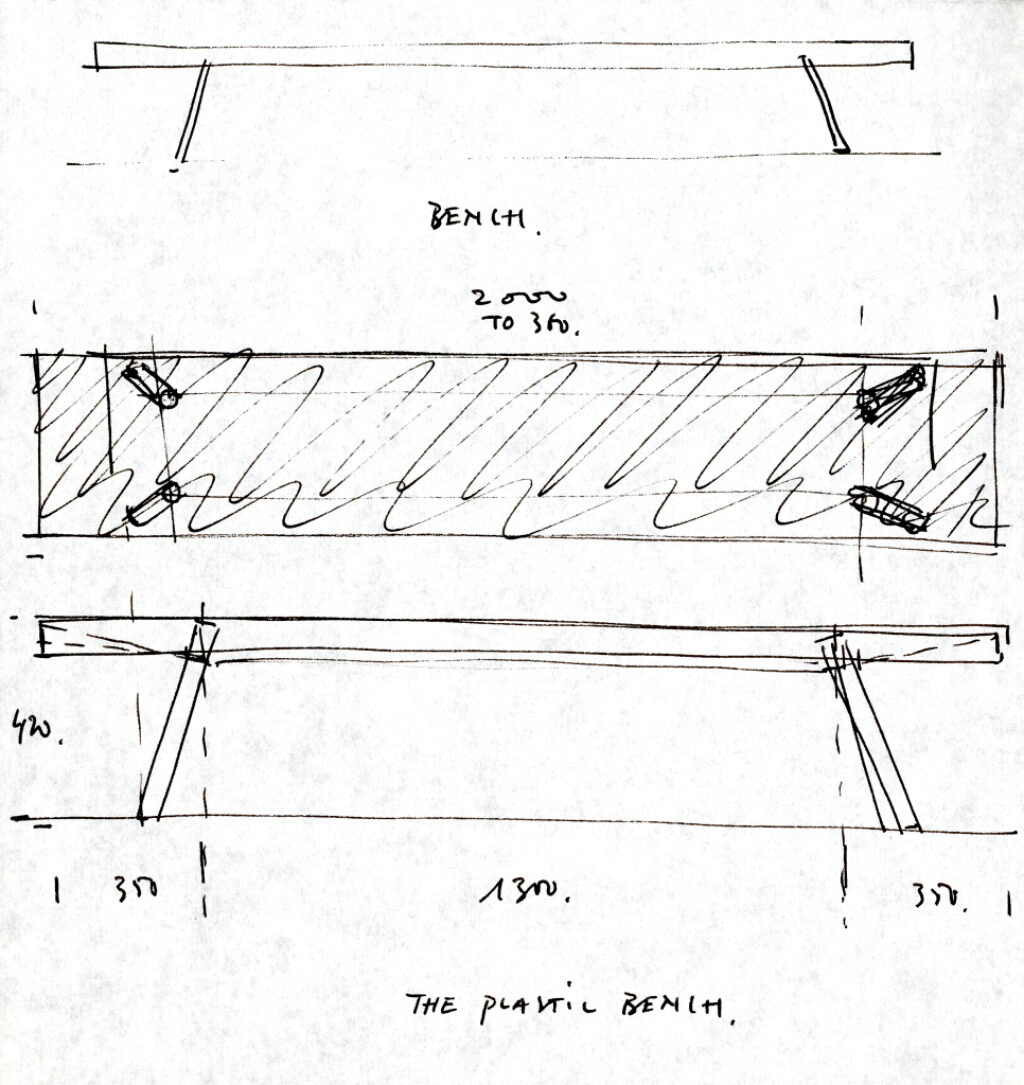 BENCH.
2000
TO 360.
420.
350
1300.
350.
THE PLASTIC BENCH.